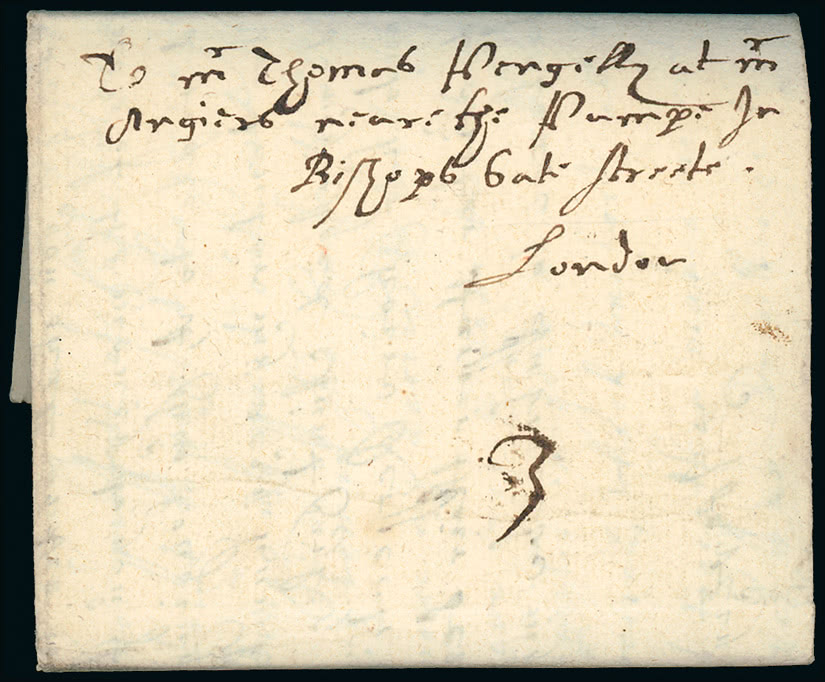 To mr Thomas Pengelly at mr
Angiers neare the Pumpe In
Bishops Gate streete.
London
3